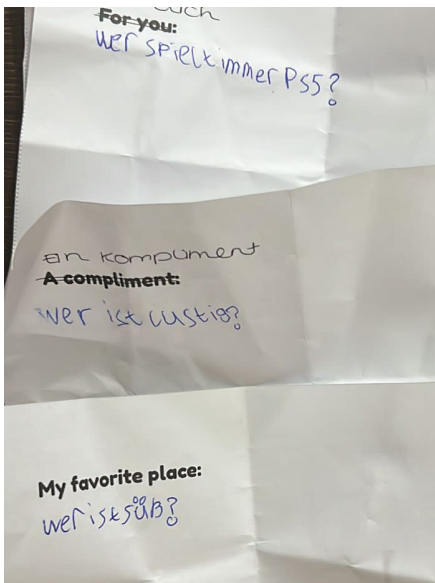 For you:
wer spielt immer PS5?
ein Kompliment
A compliment:
wer ist lustig?
My favorite place:
wer ist süß?